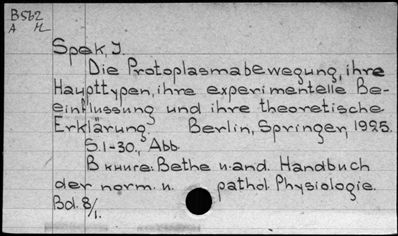 B562
A M
Spek J.
Die Protoplasmabewegung, ihre
Haupttypen, ihre experimentelle Be-
einflussung und ihre theoretische
Erklärung. Berlin, Springer, 1925.
S. 1-30, Abb.
В книге: Bethe u. and. Handbuch
der norm. u. pathol. Physiologie.
Bd. 8/1.